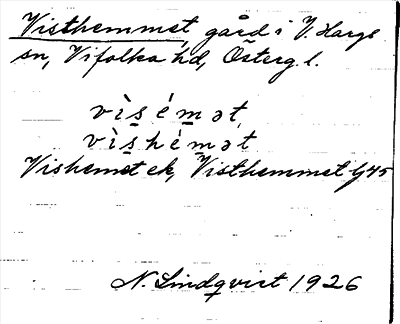 Visthemmet, gård i V. Hargs
sn, Vifolka hd, Österg. l.
vìsémət
vìshémət
Vishemet ek, Visthemmet Lj 45
N. Lindqvist 1926